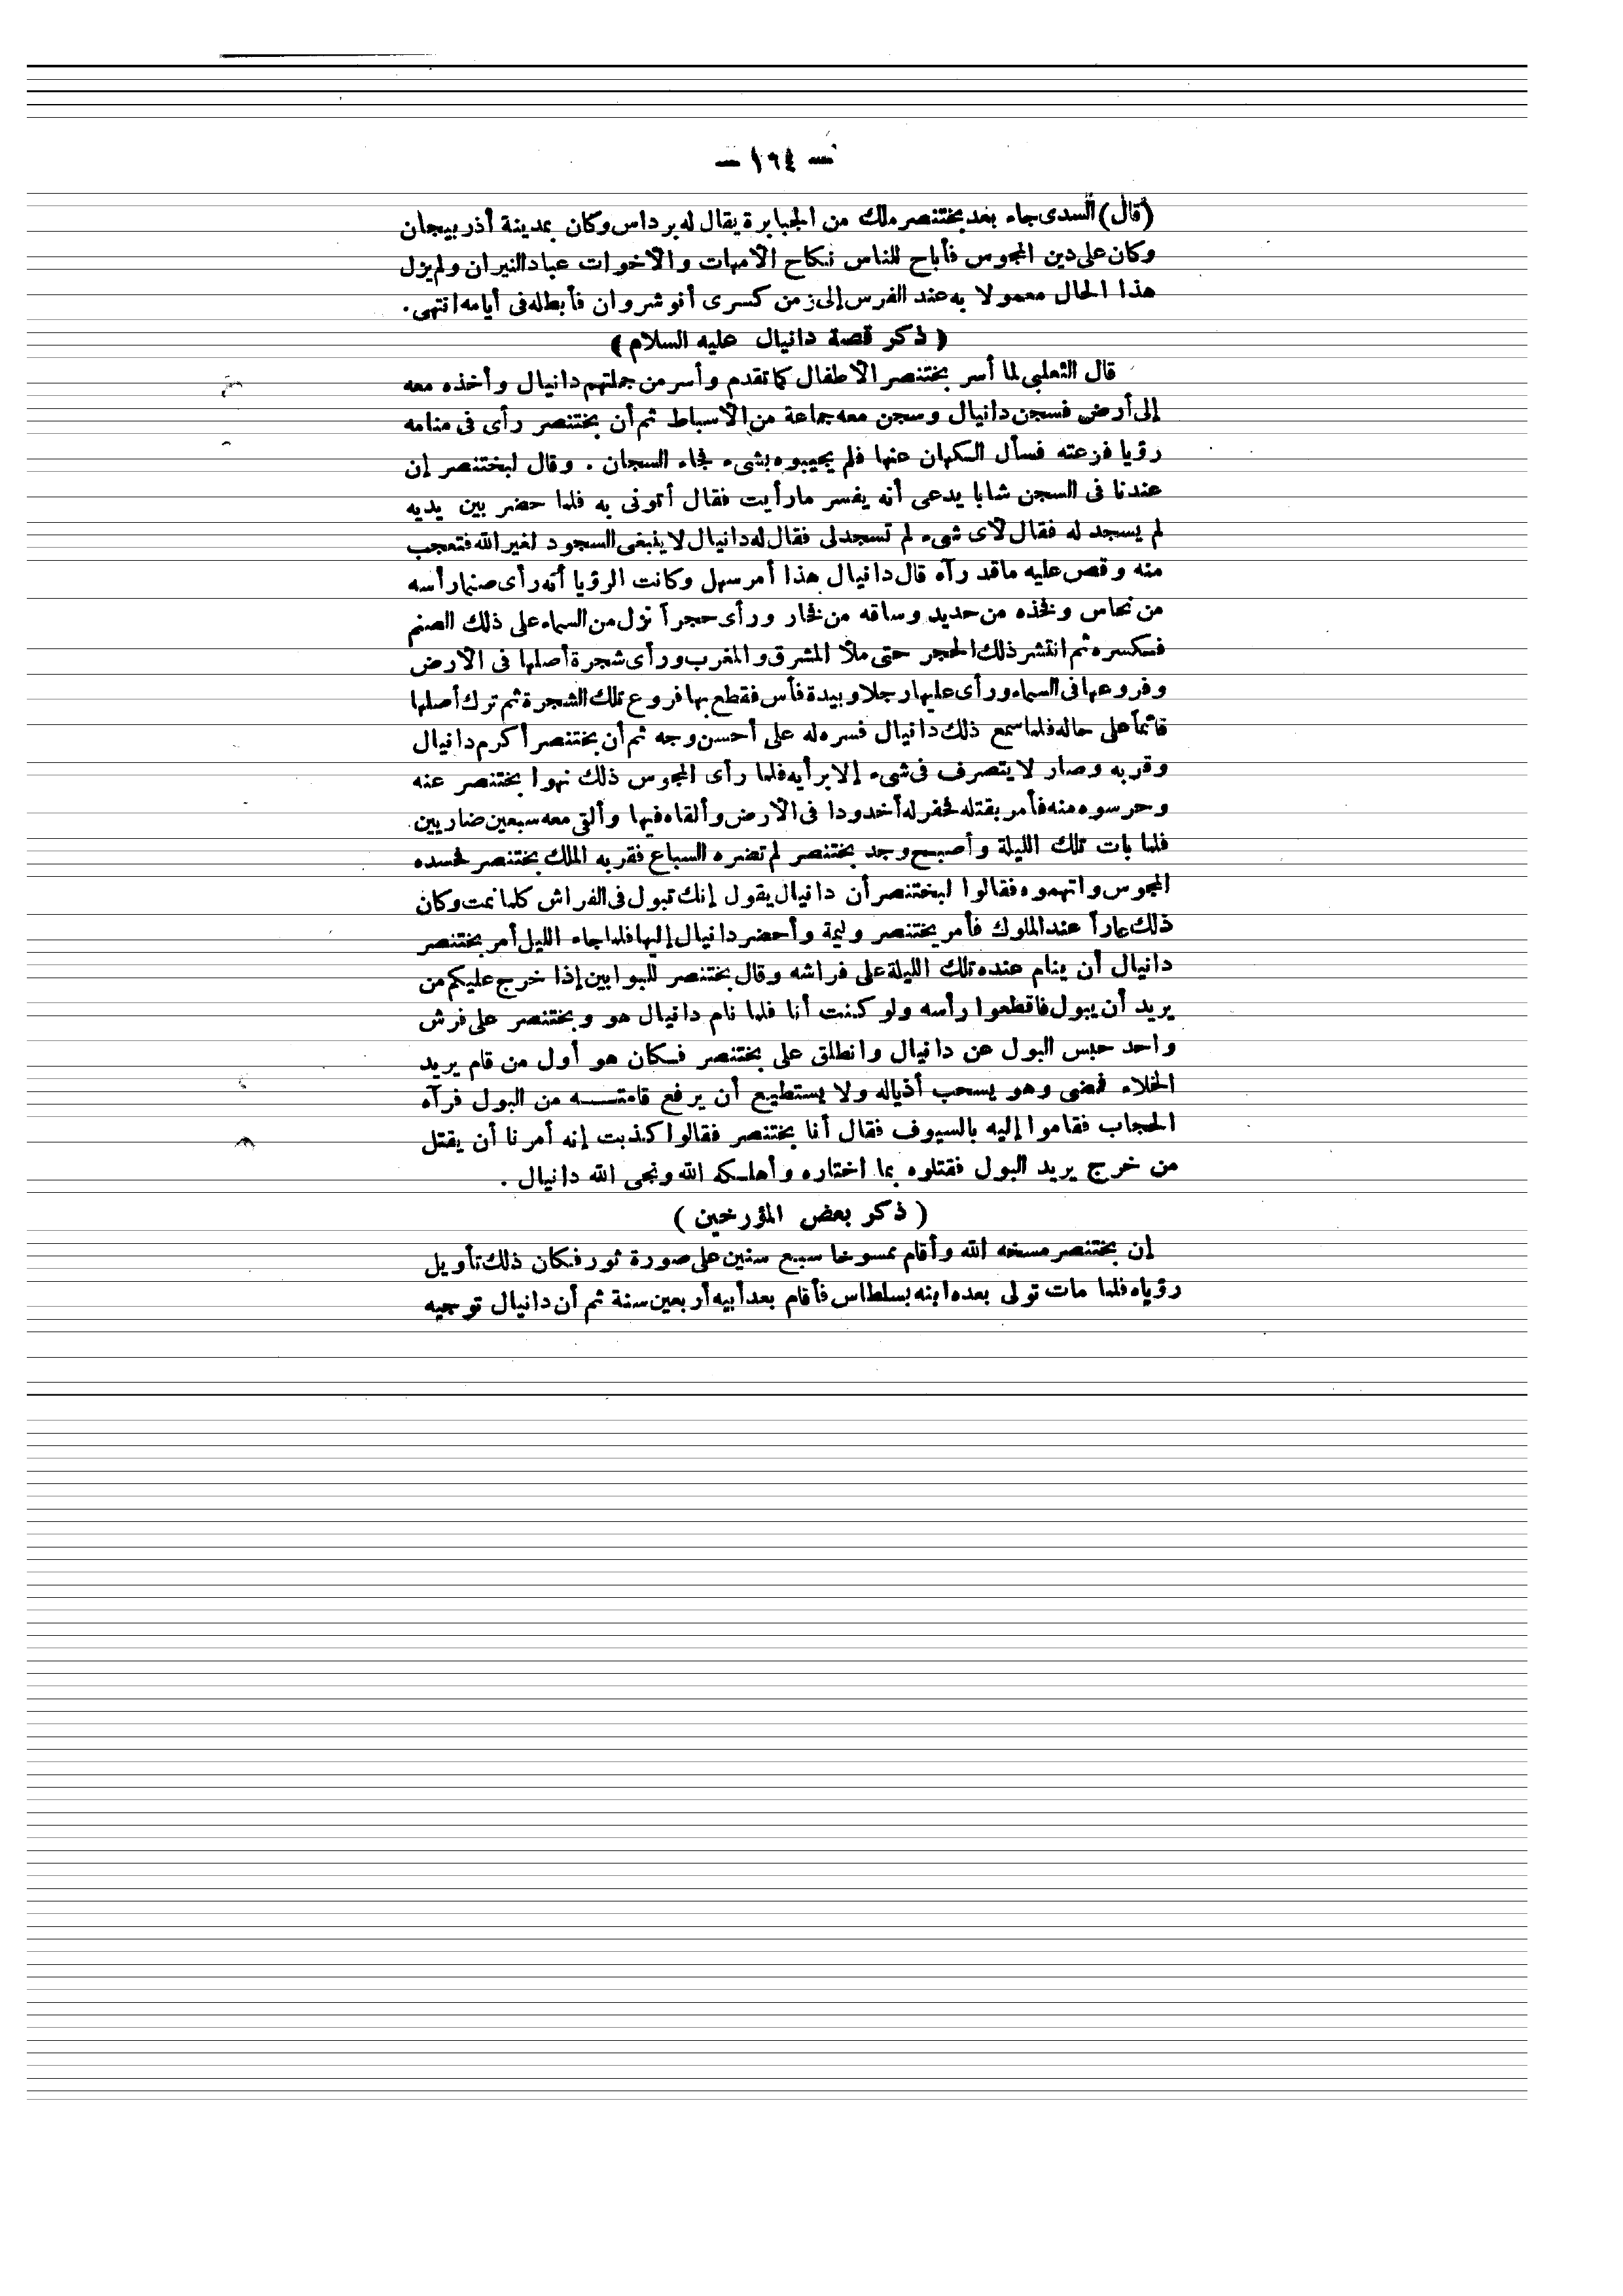 — ١٦٤ —
(قال) السدى جاء بعد بختنصر ملك من الجبابرة يقال له برداس وكان بمدينة أذربيجان
وكان على دين المجوس فأباح للناس نكاح الامهات والاخوات عباد النيران ولم يزل
هذا الحال معمولا به عند الفرس إلى زمن كسرى أنوشروان فأبطله فى أيامه انتهى .
( ذكر قصة دانيال عليه السلام )
قال الثعلبى لما أسر بختنصر الاطفال كما تقدم وأسر من جملتهم دانيال وأخذه معه
إلى أرض فسجن دانيال وسجن معه جماعة من الاسباط ثم أن بختنصر رأى فى منامه
رؤيا فزعته فسأل الكهان عنها فلم يجيبوه بشىء فجاء السجان . وقال لبختنصر إن
عندنا فى السجن شابا يدعى أنه يفسر ما رأيت فقال أتونى به فلما حضر بين يديه
لم يسجد له فقال لأى شىء لم تسجد لى فقال له دانيال لا ينبغى السجود لغير الله فتعجب
منه وقص عليه ما قد رآه قال دانيال هذا أمر سهل وكانت الرؤيا أنه رأى صنما رأسه
من نحاس وفخذه من حديد وساقه من فخار ورأى حجرآ نزل من السماء على ذلك الصنم
فكسره ثم انتشر ذلك الحجر حتى ملأ المشرق والمغرب ورأى شجرة أصلها فى الارض
وفروعها فى السماء ورأى عليها رجلا وبيدة فأس فقطع بها فروع تلك الشجرة ثم ترك أصلها
قائماً على حاله فلما سمع ذلك دانيال فسره له على أحسن وجه ثم أن بختنصر أكرم دانيال
وقربه وصار لا يتصرف فى شىء إلا برأيه فلما رأى المجوس ذلك نهوا بختنصر عنه
وحرسوه منه فأمر بقتله فحفر له أخدودا فى الارض وألقاه فيها وألقى معه سبعين ضاريين
فلما بات تلك الليلة وأصبح وجد بختنصر لم تضره السباع فقربه الملك بختنصر فحسده
المجوس واتهموه فقالوا لبختنصر أن دانيال يقول إنك تبول فى الفراش كلما نمت وكان
ذلك عاراً عند الملوك فأمر بختنصر وليمة وأحضر دانيال إليها فلما جاء الليل أمر بختنصر
دانيال أن ينام عنده تلك الليلة على فراشه وقال بختنصر للبوابين إذا خرج عليكم من
يريد أن يبول فاقطعوا رأسه ولو كنت أنا فلما نام دانيال هو وبختنصر على فرش
واحد حبس البول عن دانيال وانطلق على بختنصر فكان هو أول من قام يريد
الخلاء فمضى وهو يسحب أذياله ولا يستطيع أن يرفع قامته من البول فرآه
الحجاب فقاموا إليه بالسيوف فقال أنا بختنصر فقالوا كذبت إنه أمرنا أن يقتل
من خرج يريد البول فقتلوه بما اختاره وأهلكه الله ونجى الله دانيال .
( ذكر بعض المؤرخين )
إن بختنصر مسخه الله وأقام ممسوخا سبع سنين على صورة ثور فكان ذلك تأويل
رؤياه فلما مات تولى بعده ابنه بسلطاس فأقام بعد أبيه أربعين سنة ثم أن دانيال توجيه